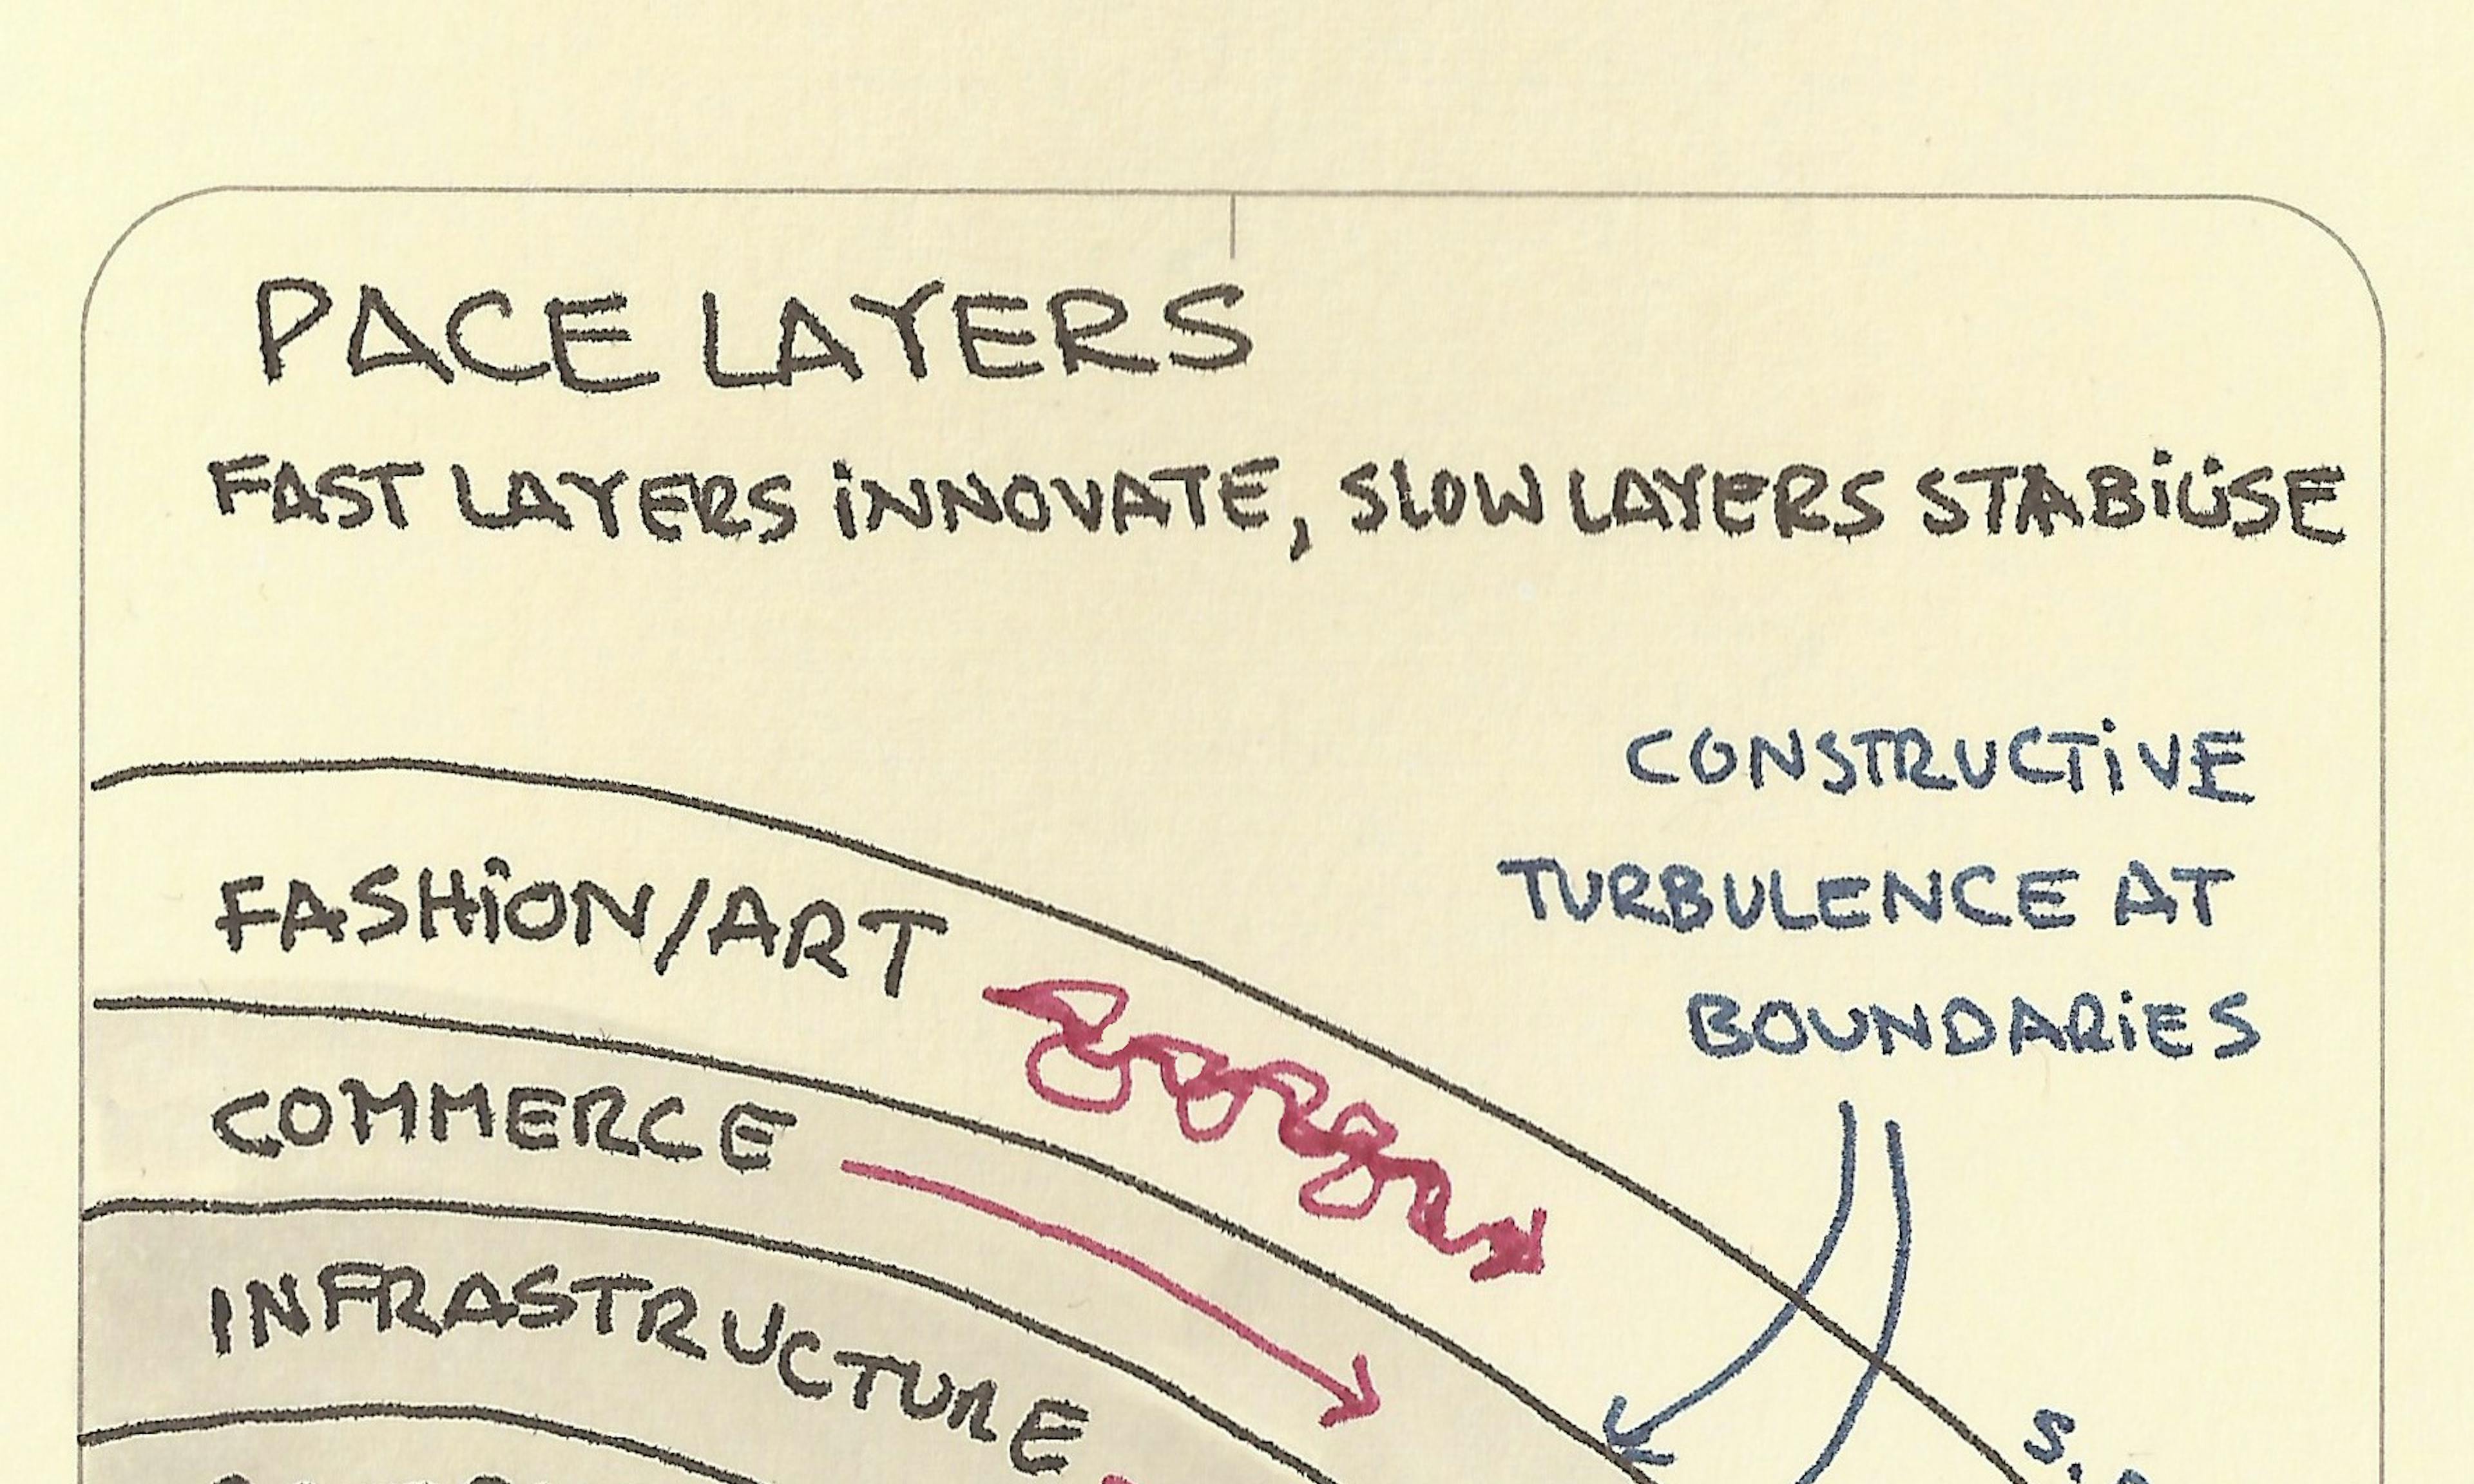 PACE LAYERS
FAST LAYERS INNOVATE, SLOW LAYERS STABILISE
CONSTRUCTIVE
TURBULENCE AT
BOUNDARIES
FASHION/ART
COMMERCE
INFRASTRUCTURE
S.